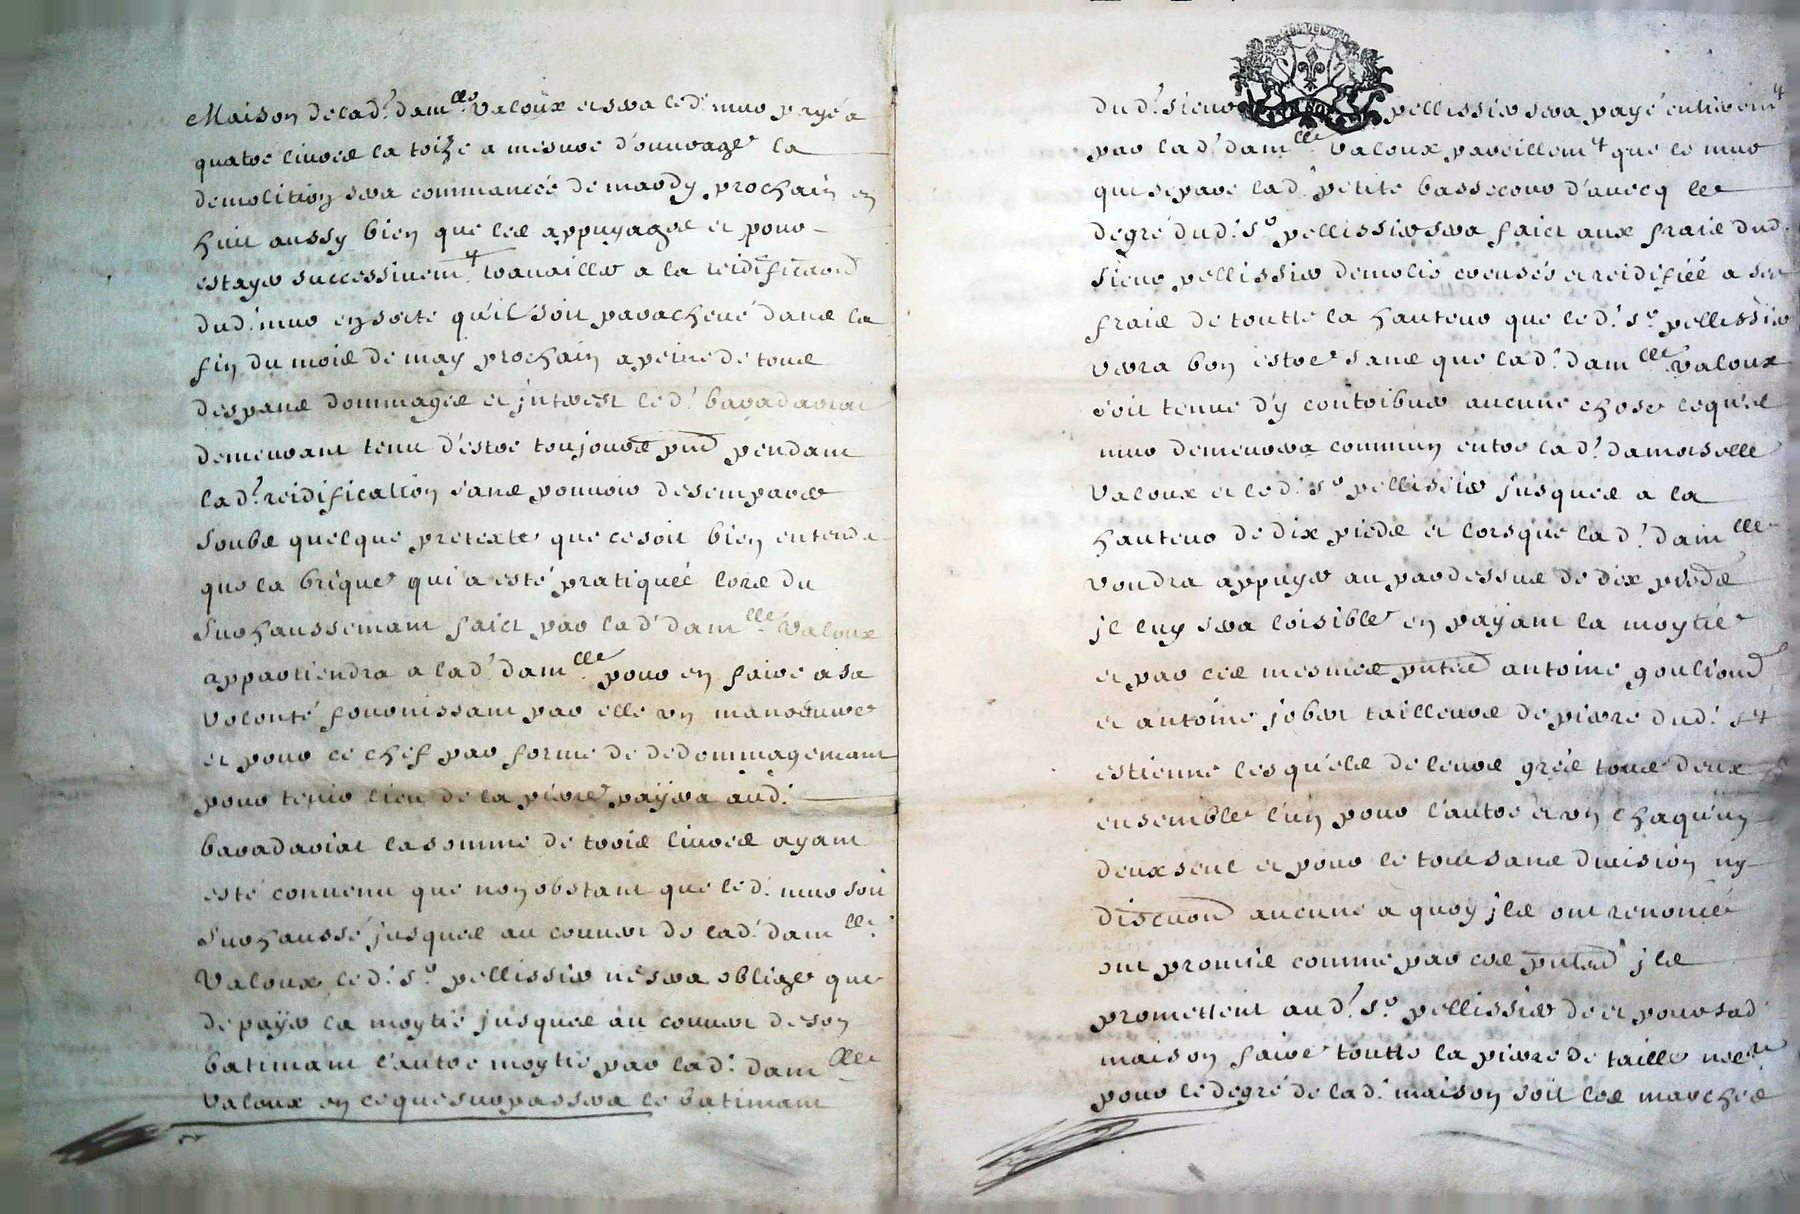 Maison de lad.' dam.lle Valoux et sera led' mur payé a
quatre livres la toize a mesure d'ouurage la
demolition sera commancée de mardy prochain en
huit aussy bien que les appuyages et pour
estayer successivem.t trauailler a la reidificaon
dud.' mur en sorte qu'il soit paracheué dans la
fin du mois de may prochain a peine de tous
despans dommages et jnterest led.' baradariat
demeurant tenu d'estre toujours pnt pendant
lad.' reidification sans pouuoir desemparer
Soubs quelque pretexte que ce soit bien entendu
que la brique qui a esté pratiquée lors du
Surhaussemant faict par lad' dam.lle Valoux
appartiendra a lad' dam.lle pour en faire a sa
volonté fournissant par elle vn manoeuure
et pour ce chef par forme de dedommagemant
pour tenir lieu de la pierre payera aud.'
baradariat la somme de trois liures ayant
esté conuenu que nonobstant que led.' mur soit
Surhaussé jusques au couuert de lad' dam.lle
Valoux led.' s.r pellissier ne sera obligé que
de payer la moytié jusques au couuert de son
batimant l'autre moytié par lad.' dam.lle
Valoux en ce que surpassera le batimant
dud.' sieur pellissier sera payé entierem.t
par lad' dam.lle Valoux pareillem.t que le mur
qui separe lad.' petite bassecour d'auecq le
degré dud.' s.r pellissier sera faict aux frais dud.
sieur pellissier demolis creusés et reidifiée a ses
frais de toutte la hauteur que led.' s.r pellissier
verra bon estre sans que lad.' dam.lle Valoux
soit tenue d'y contribuer aucune chose lequel
mur demeurera commun entre lad.' damoiselle
Valoux et led.' s.r pellissier jusques a la
hauteur de dix pieds et lorsque lad.' dam.lle
voudra appuyer au par dessus de dix pieds
jl luy sera loisible en payant la moytié
et par ces mesmes pntes antoine gouliond
et antoine jobert tailleurs de pierre dud.' s.t
estienne lesquels de leurs grés tous deux
ensemble l'un pour l'autre et vn chaqu'un
deux seul et pour le tout sans diuision ny
discuon aucune a quoy jls ont renoncé
ont promis comme par ces pntes jls
promettent aud.' s.r pellissier de et pour sad
maison faire toutte la pierre de taille ness.re
pour le degré de lad.' maison soit les marches